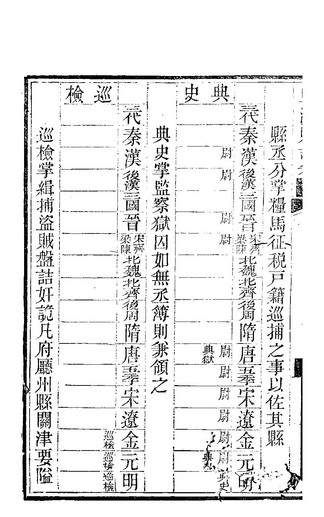 縣丞分掌糧馬征稅戶籍巡捕之事以佐其縣
三代秦漢後漢三國晉宋齊梁陳北魏北齊後周隋唐五季宋遼金元明
典史
尉
尉
尉
尉
尉
典獄
尉
尉
尉
尉
尉
典史
典史掌監察獄囚如無丞簿則兼領之
三代秦漢後漢三國晉宋齊梁陳北魏北齊後周隋唐五季宋遼金元明
巡檢
巡檢
巡檢
巡檢
巡檢掌緝捕盜賊盤詰奸詭凡府廳州縣關津要隘